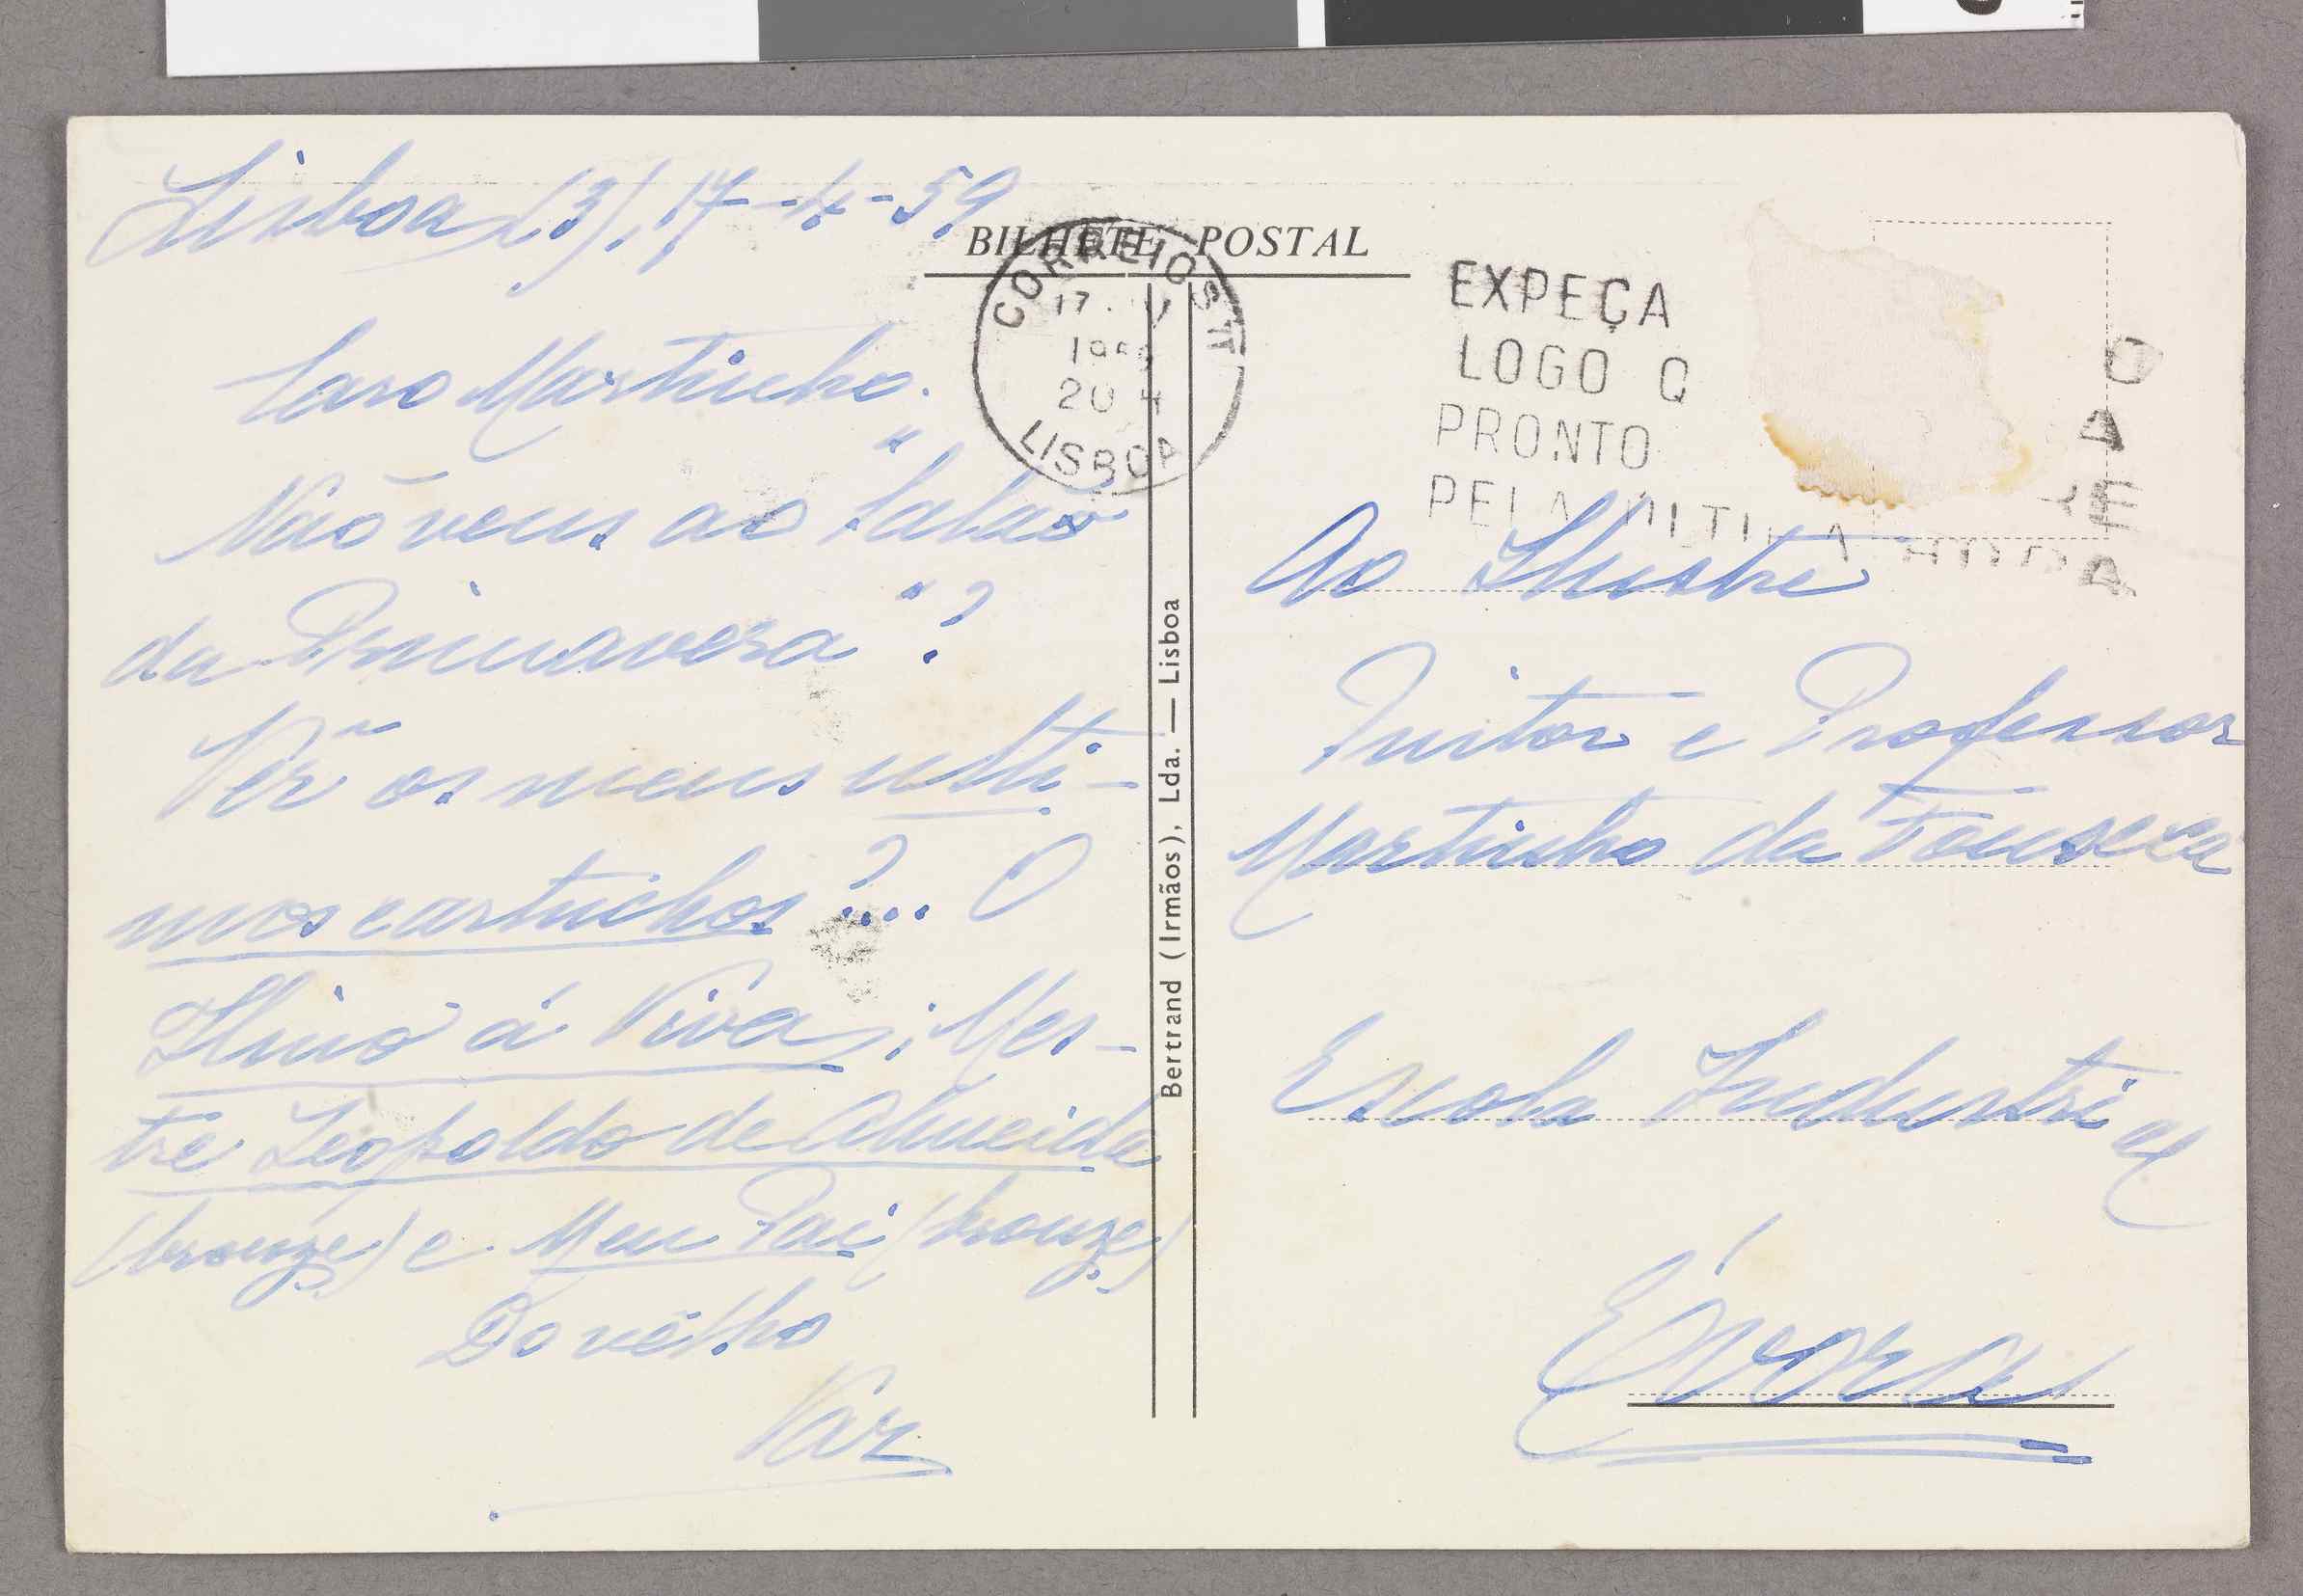 Lisboa (3), 17-4-59
Caro Martinho.
Não vens ao "Salão
da Primavera"?
Vêr os meus ulti-
mos cartuchos?... O
Hino á Viva; Mes-
tre Leopoldo de Almeida
(bronze) e Meu Pai (bronze)
Do vélho
Vaz
BILHETE POSTAL
CORREIOS TT
17.
195
20 H
LISBOA
EXPEÇA
LOGO O
PRONTO
PELA ULTIMA HORA
Bertrand (Irmãos), Lda. — Lisboa
Ao Ilustre
Pintor e Professor
Martinho da Fonseca
Escola Industrial
Évora